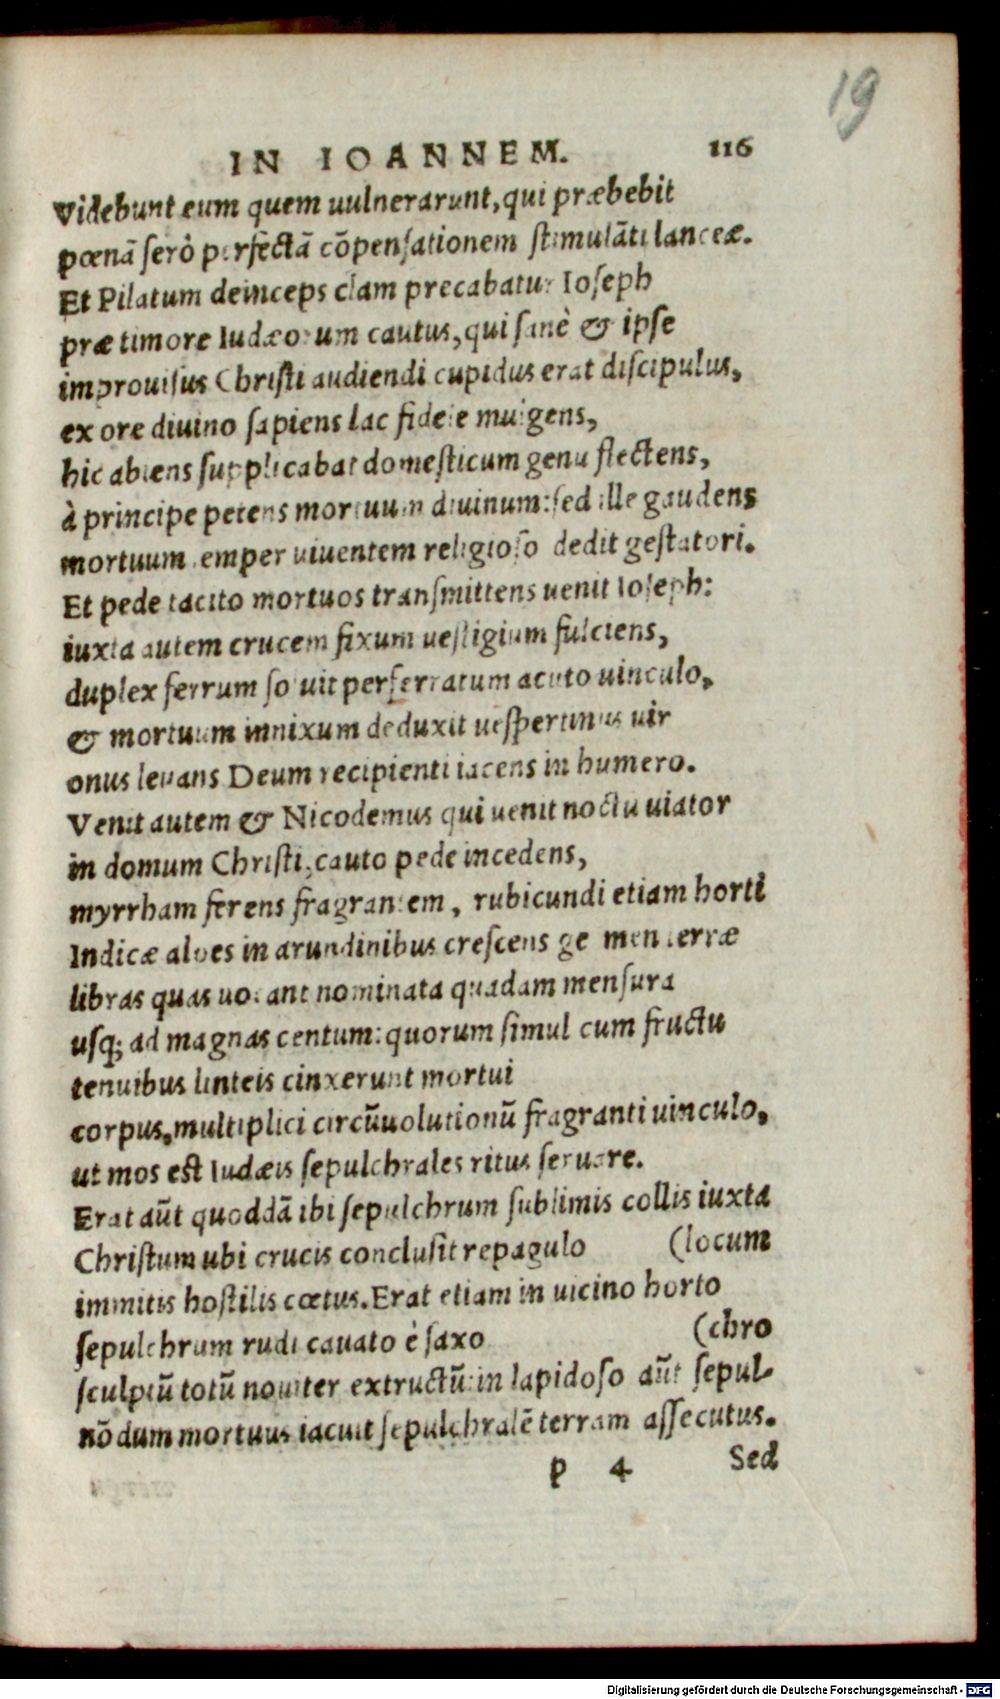 19
IN IOANNEM. 116
Videbunt eum quem uulnerarunt, qui præbebit
pœnā serò perfectā cōpensationem stimulāti lanceæ.
Et Pilatum deinceps clam precabatur Ioseph
præ timore Iudæorum cautus, qui sanè & ipse
improuisus Christi audiendi cupidus erat discipulus,
ex ore diuino sapiens lac fidele mulgens,
hic abiens supplicabat domesticum genu flectens,
à principe petens mortuum diuinum: sed ille gaudens
mortuum semper uiuentem religioso dedit gestatori.
Et pede tacito mortuos transmittens uenit Ioseph:
iuxta autem crucem fixum uestigium fulciens,
duplex ferrum soluit perferratum acuto uinculo,
& mortuum innixum deduxit uespertinus uir
onus leuans Deum recipienti iacens in humero.
Venit autem & Nicodemus qui uenit noctu uiator
in domum Christi, cauto pede incedens,
myrrham ferens fragrantem, rubicundi etiam horti
Indicæ aloes in arundinibus crescens germen terræ
libras quas uocant nominata quadam mensura
usq; ad magnas centum: quorum simul cum fructu
tenuibus linteis cinxerunt mortui
corpus, multiplici circūuolutionū fragranti uinculo,
ut mos est Iudæis sepulchrales ritus seruare.
Erat aūt quoddā ibi sepulchrum sublimis collis iuxta
Christum ubi crucis conclusit repagulo (locum
immitis hostilis cœtus. Erat etiam in uicino horto
sepulchrum rudi cauato è saxo (chro
sculptū totū nouiter extructū: in lapidoso aūt sepul-
nō dum mortuus iacuit sepulchralē terram assecutus.
p 4 Sed
Digitalisierung gefördert durch die Deutsche Forschungsgemeinschaft - DFG